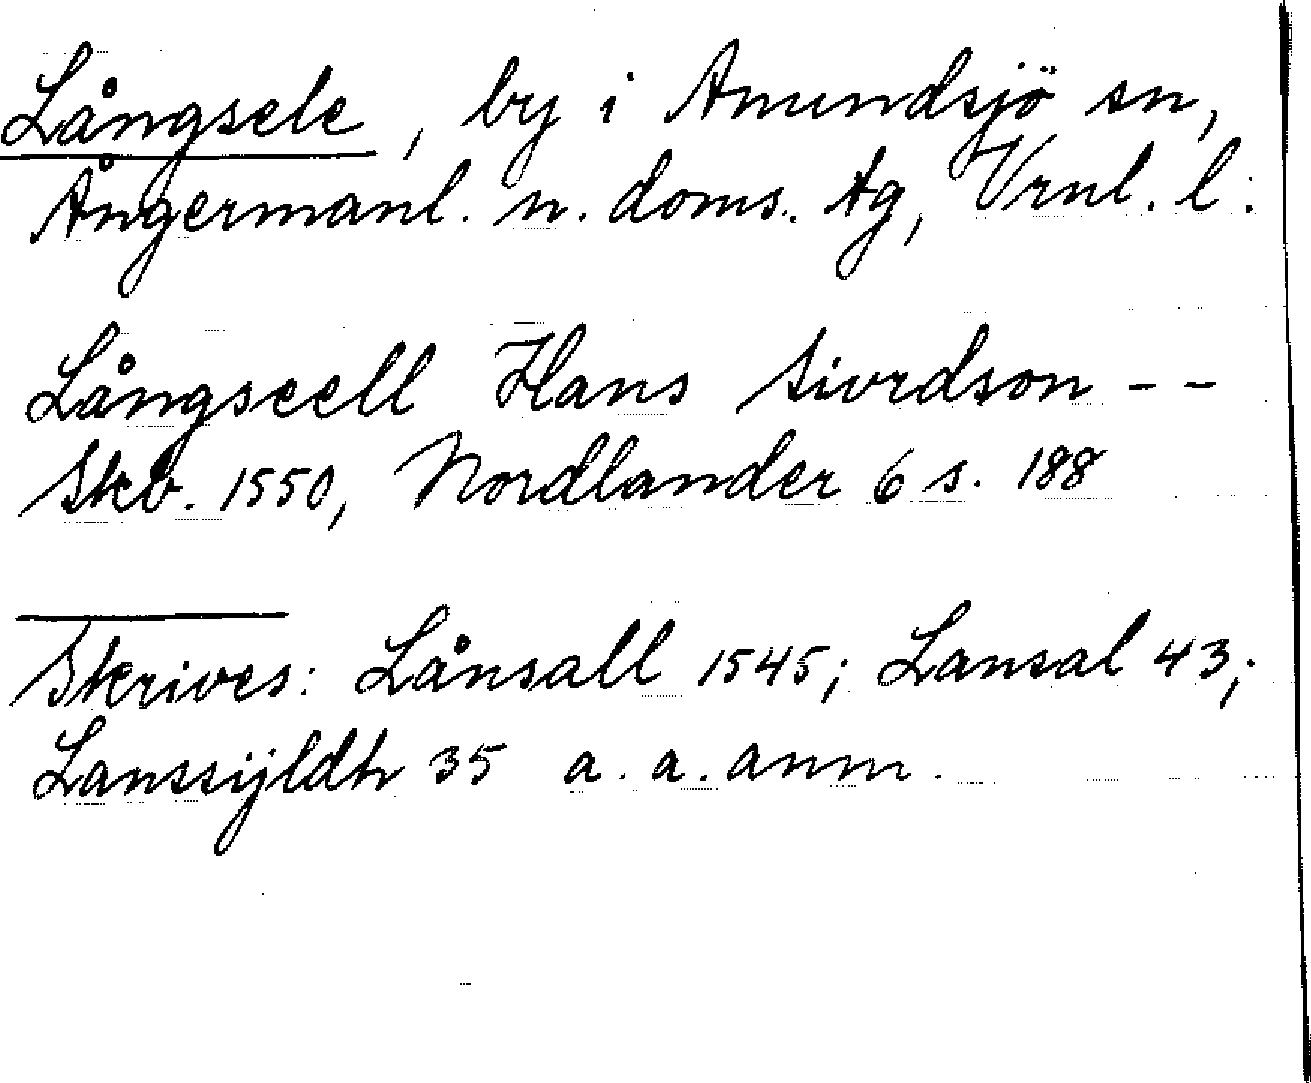 Långsele, by i Amundsjö sn,
Ångermanl. n. doms. Ag, Vrnl. l:
Långseell Hans Sivrdson - -
Skb. 1550, Nordlander 6 s. 188
Skrives: Långsall 1545; Lansal 43;
Lanssijldh 35 a. a. anm.